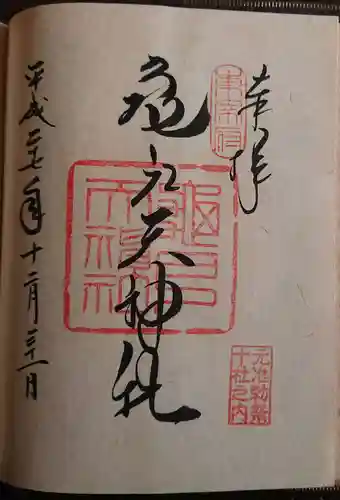 奉拝
東宰府
亀戸天神社
元准勅祭
十社之内
平成二十七年十二月三十一日